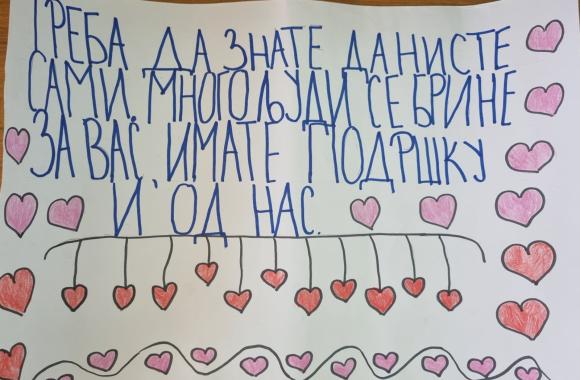 ТРЕБА ДА ЗНАТЕ ДА НИСТЕ
САМИ. МНОГО ЉУДИ СЕ БРИНЕ
ЗА ВАС. ИМАТЕ ПОДРШКУ
И ОД НАС.